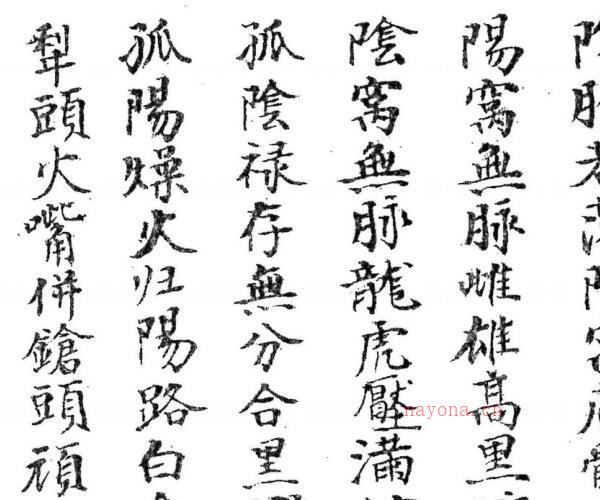 陽窩無脉雌雄高黒
陰窩無脉龍虎壓滿
孤陰禄存無分合黒
孤陽燥火归陽路白
犁頭火嘴併鎗頭頑
nayona.cn